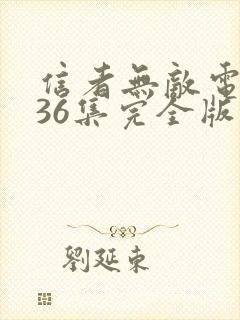 信者無敵電
36集完全版
劉延東